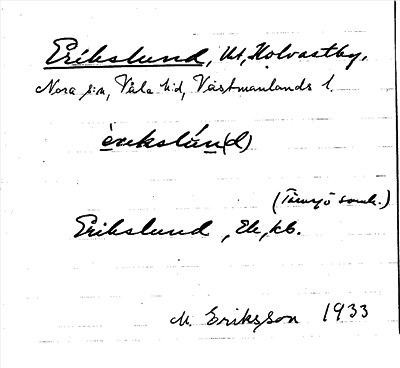 Erikslund, Ut, Holvastby.
Nora s:n, Våla hd, Västmanlands l.
èrikslún(d)
(Tärnsjö samh.)
Erikslund, Ek, kb.
M. Eriksson 1933